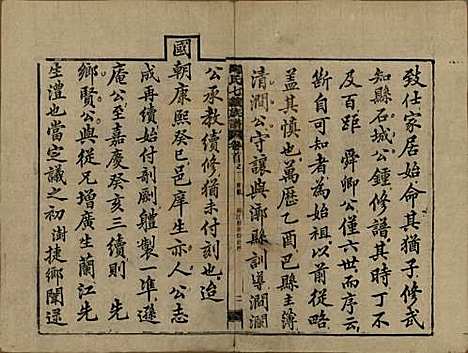 致仕家居始命其猶子修武
知縣石城公鍾修譜其時丁不
及百距 舜卿公僅六世而云原
斷自可知者為始祖以前從略
蓋其慎也萬歷乙酉巴縣主簿
清澗公守讓與浉縣訓導澗瀾
公承教續修猶未付刻也迨
國朝康熙癸巳邑庠生亦人公志
成再續始付剞劂體製一準遜
庵公至嘉慶癸亥三續則 先
鄉賢公與從兄增廣生蘭江先
生澧也當定議之初澍捷鄉闈還
氏七續族譜 卷首